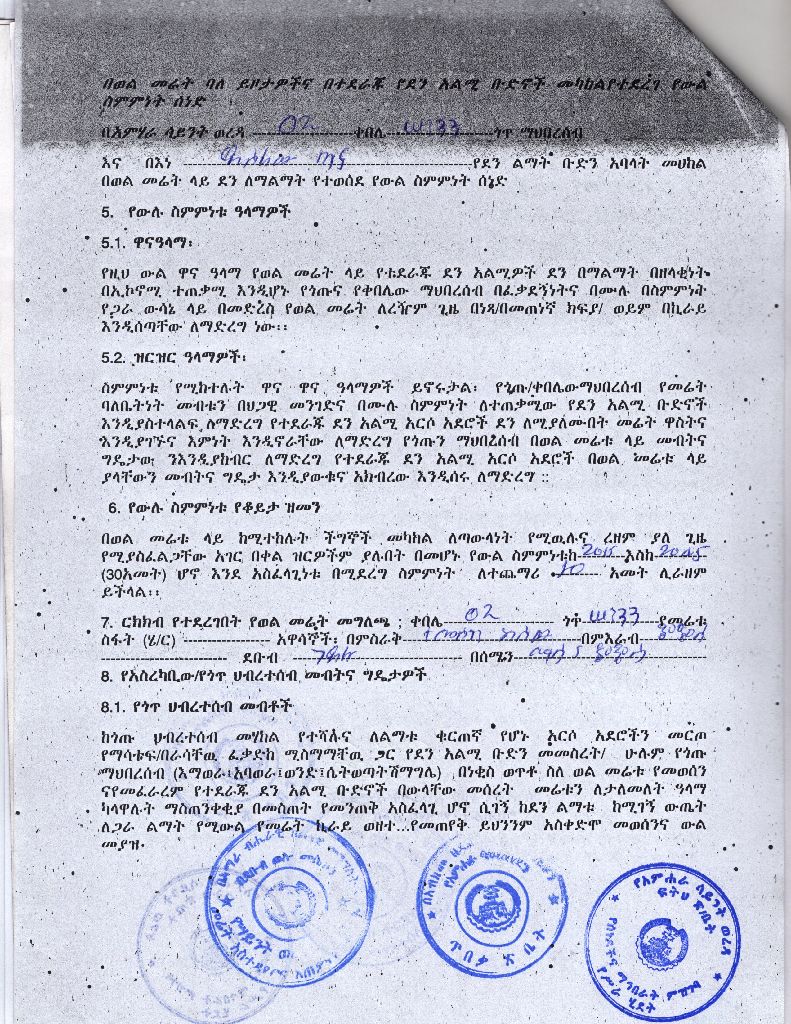 በወል መሬት ባለ ይዞታዎችና በተደራጁ የደን አልሚ ቡድኖች መካከልየተደረገ የውል
ስምምነት ሰነድ
በአምሃራ ሳይንት ወረዳ 02 ቀበሌ ጎጥ ማህበረሰብ
እና በእነ የደን ልማት ቡድን አባላት መሀከል
በወል መሬት ላይ ደን ለማልማት የተወሰደ የውል ስምምነት ሰኔድ
5. የውሉ ስምምነቱ ዓላማዎች
5.1. ዋናዓላማ፡
የዚህ ውል ዋና ዓላማ የወል መሬት ላይ የተደራጁ ደን አልሚዎች ደን በማልማት በዘላቂነት
በኢኮኖሚ ተጠቃሚ እንዲሆኑ የጎጡና የቀበሌው ማህበረሰብ በፈቃደኝነትና በሙሉ በስምምነት
የጋራ ውሳኔ ላይ በመድረስ የወል መሬት ለረዥም ጊዜ በነጻ/በመጠነኛ ክፍያ/ ወይም በኪራይ
እንዲሰጣቸው ለማድረግ ነው፡፡
5.2. ዝርዝር ዓላማዎች፡
ስምምነቱ የሚከተሉት ዋና ዋና ዓላማዎች ይኖሩታል፡ የጎጡ/ቀበሌውማህበረሰብ የመሬት
ባለቤትነት መብቱን በህጋዊ መንገድና በሙሉ ስምምነት ለተጠቃሚው የደን አልሚ ቡድኖች
እንዲያስተላልፍ ለማድረግ የተደራጁ ደን አልሚ አርሶ አደሮች ደን ለሚያለሙበት መሬት ዋስትና
እንዲያገኙና እምነት እንዲኖራቸው ለማድረግ የጎጡን ማህበረሰብ በወል መሬቱ ላይ መብትና
ግዴታዉ ንእንዲያከብር ለማድረግ የተደራጁ ደን አልሚ አርሶ አደሮች በወል መሬቱ ላይ
ያላቸውን መብትና ግዴታ እንዲያውቁና አክብረው እንዲሰሩ ለማድረግ ::
6. የውሉ ስምምነቱ የቆይታ ዘመን
በወል መሬቱ ላይ ከሚተከሉት ችግኞች መካከል ለጣውላነት የሚዉሉና ረዘም ያለ ጊዜ
የሚያስፈልጋቸው አገር በቀል ዝርዎችም ያሉበት በመሆኑ የውል ስምምነቱከ 2015 እስከ 2045
(30አመት) ሆኖ እንደ አስፈላጊነቱ በሚደረግ ስምምነት ለተጨማሪ አመት ሊራዘም
ይችላል፡፡
7. ርክክብ የተደረገበት የወል መሬት መግለጫ ; ቀበሌ 02 ጎጥ የመሬቱ
ስፋት (ሄ/ር) አዋሳኞች፡ በምስራቅ በምእራብ
ደቡብ በሰሜን
8. የአስረካቢው/የጎጥ ህብረተሰብ መብትና ግዴታዎች
8.1. የጎጥ ህብረተሰብ መብቶች
ከጎጡ ህብረተሰብ መሃከል የተሻሉና ለልማቱ ቁርጠኛ የሆኑ አርሶ አደሮችን መርጦ
የማሳቴፍ/በራሳቸዉ ፈቃድከ ሚስማማቸዉ ጋር የደን አልሚ ቡድን መመስረት/ ሁሉም የጎጡ
ማህበረሰብ (እማወራ፤አባወራ፤ወንድ፤ሴትወጣትሽማግሌ) በነቂስ ወጥቶ ስለ ወል መሬቱ የመወሰን
ናየመፈራረም የተደራጁ ደን አልሚ ቡድኖች በውላቸው መሰረት መሬቱን ለታለመለት ዓላማ
ካላዋሉት ማስጠንቀቂያ በመስጠት የመንጠቅ አስፈላጊ ሆኖ ሲገኝ ከደን ልማቱ ከሚገኝ ውጤት
ለጋራ ልማት የሚውል የመሬት ኪራይ ወዘተ...የመጠየቅ ይህንንም አስቀድሞ መወሰንና ውል
መያዝ.
የአምሐራ ሳይንት ወረዳ
ፍትህ ጽ/ቤት
ጥበቃ ጽ ቤት